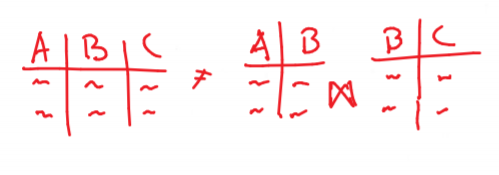 A B C ≠ A B ⋈ B C